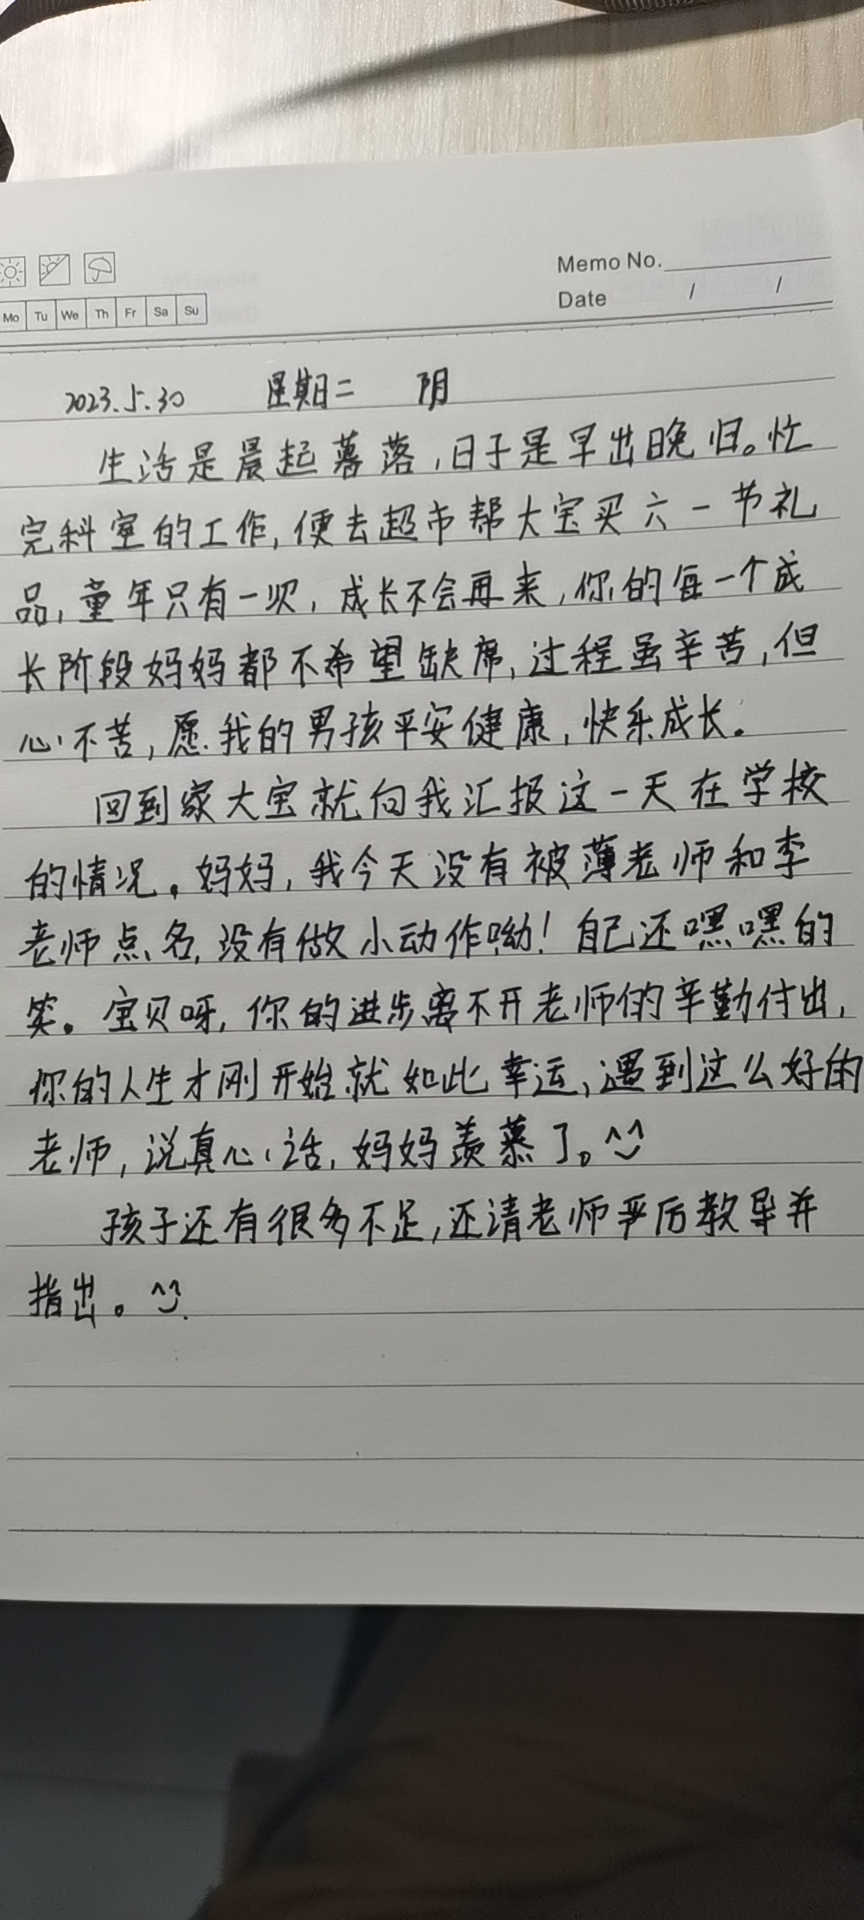 Memo No.
Date / /
Mo Tu We Th Fr Sa Su
2023.5.30 星期二 阴
生活是晨起暮落,日子是早出晚归。忙
完科室的工作,便去超市帮大宝买六一节礼
品,童年只有一次,成长不会再来,你的每一个成
长阶段妈妈都不希望缺席,过程虽辛苦,但
心不苦,愿我的男孩平安健康,快乐成长。
回到家大宝就向我汇报这一天在学校
的情况。妈妈,我今天没有被薄老师和李
老师点名,没有做小动作呦!自己还嘿嘿的
笑。宝贝呀,你的进步离不开老师的辛勤付出,
你的人生才刚开始就如此幸运,遇到这么好的
老师,说真心话,妈妈羡慕了。^^
孩子还有很多不足,还请老师严厉教导并
指出。^^